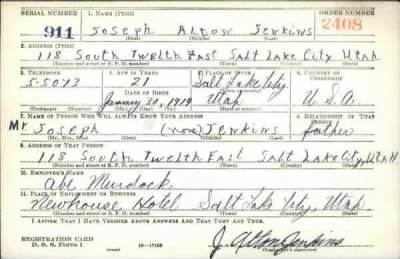 SERIAL NUMBER 1. NAME (Print) ORDER NUMBER
911 Joseph Alton Jenkins 2408
(First) (Middle) (Last)
2. ADDRESS (Print)
118 South Twelth East Salt Lake City Utah
(Number and street or R. F. D. number) (Town) (County) (State)
3. TELEPHONE 4. AGE IN YEARS 5. PLACE OF BIRTH 6. COUNTRY OF CITIZENSHIP
5-5073 21 Salt Lake City
DATE OF BIRTH (Town or county)
January 30, 1919 Utah U.S.A.
(Exchange) (Number) (Mo.) (Day) (Yr.) (State or country)
7. NAME OF PERSON WHO WILL ALWAYS KNOW YOUR ADDRESS 8. RELATIONSHIP OF THAT PERSON
Mr. Joseph (none) Jenkins father
(Mr., Mrs., Miss) (First) (Middle) (Last)
9. ADDRESS OF THAT PERSON
118 South Twelth East Salt Lake City, Utah
(Number and street or R. F. D. number) (Town) (County) (State)
10. EMPLOYER'S NAME
Abe Murdock
11. PLACE OF EMPLOYMENT OR BUSINESS
Newhouse Hotel Salt Lake City, Utah.
(Number and street or R. F. D. number) (Town) (County) (State)
I AFFIRM THAT I HAVE VERIFIED ABOVE ANSWERS AND THAT THEY ARE TRUE.
REGISTRATION CARD
D. S. S. Form 1 16-17105 J. Alton Jenkins
(Registrant's signature)